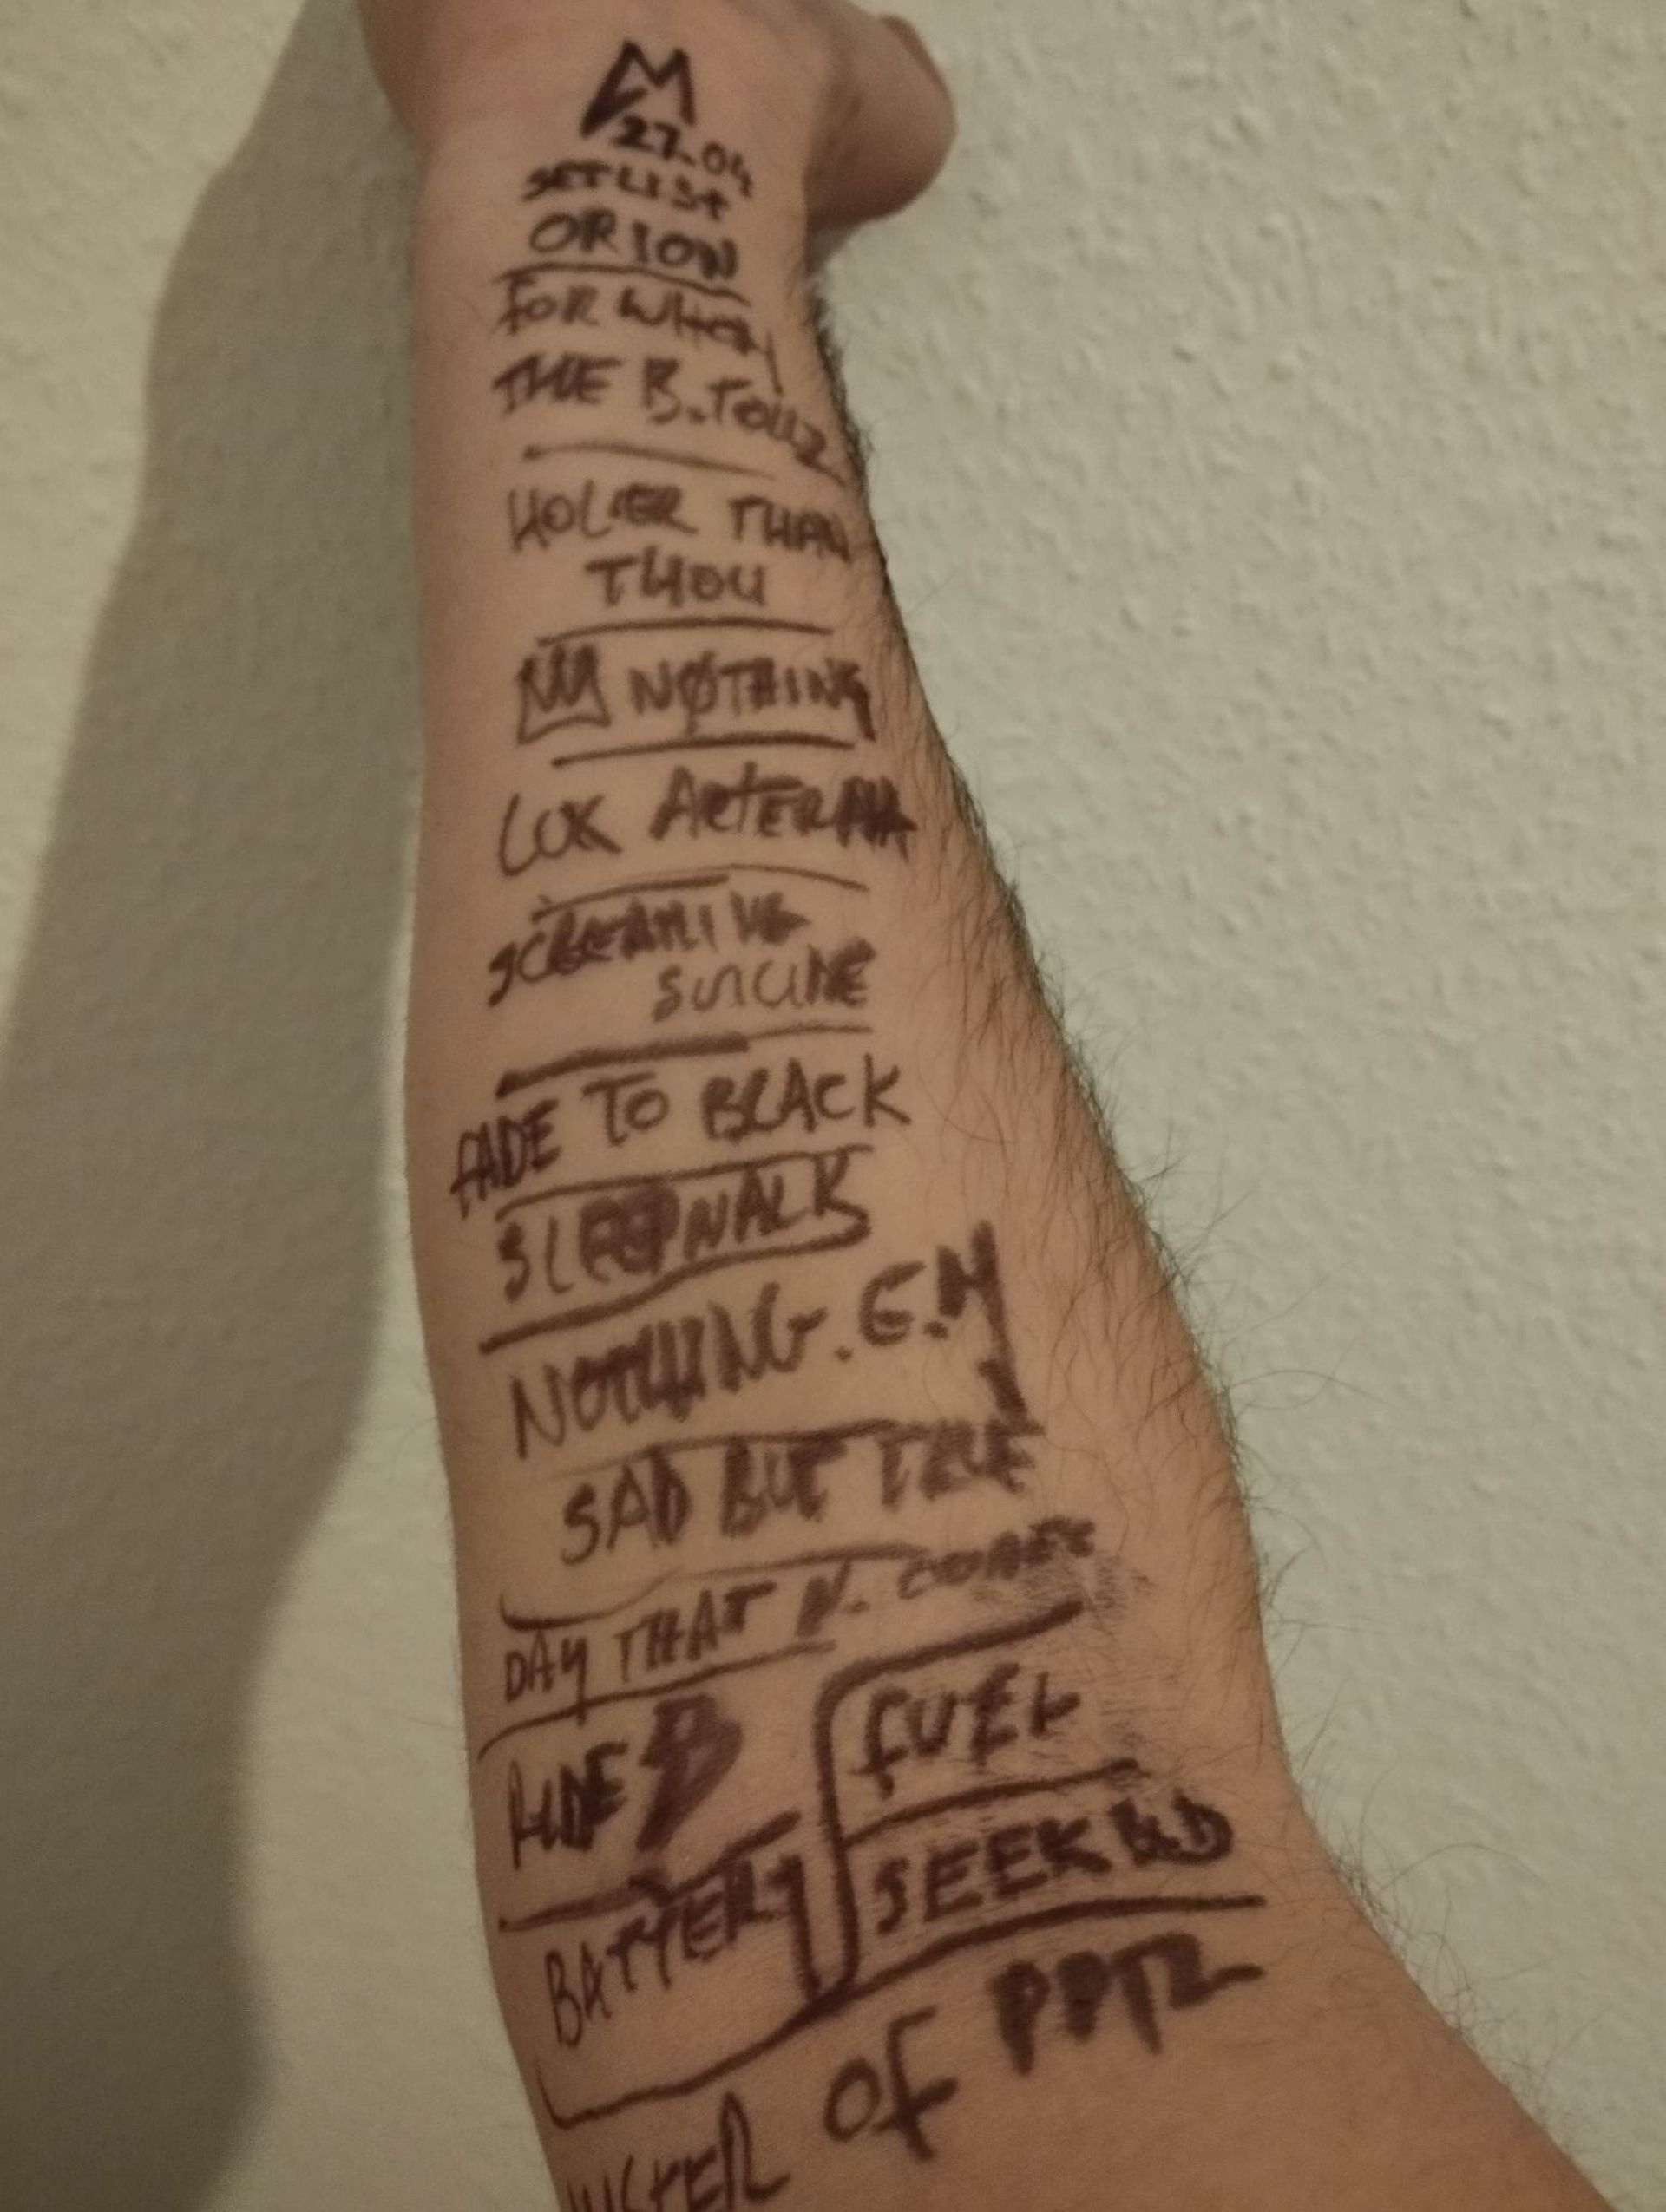 M
27-04
SETLIST
ORION
FOR WHOM
THE B.TOLLZ
HOLIER THAN
THOU
NØTHING
LUX AETERNA
SCREAMING
SUICIDE
FADE TO BLACK
SLEEPWALK
NOTHING.E.M
SAD BUT TRUE
DAY THAT N. COMES
RIDE
FUEL
SEEK & D
BATTERY
OF PPTZ